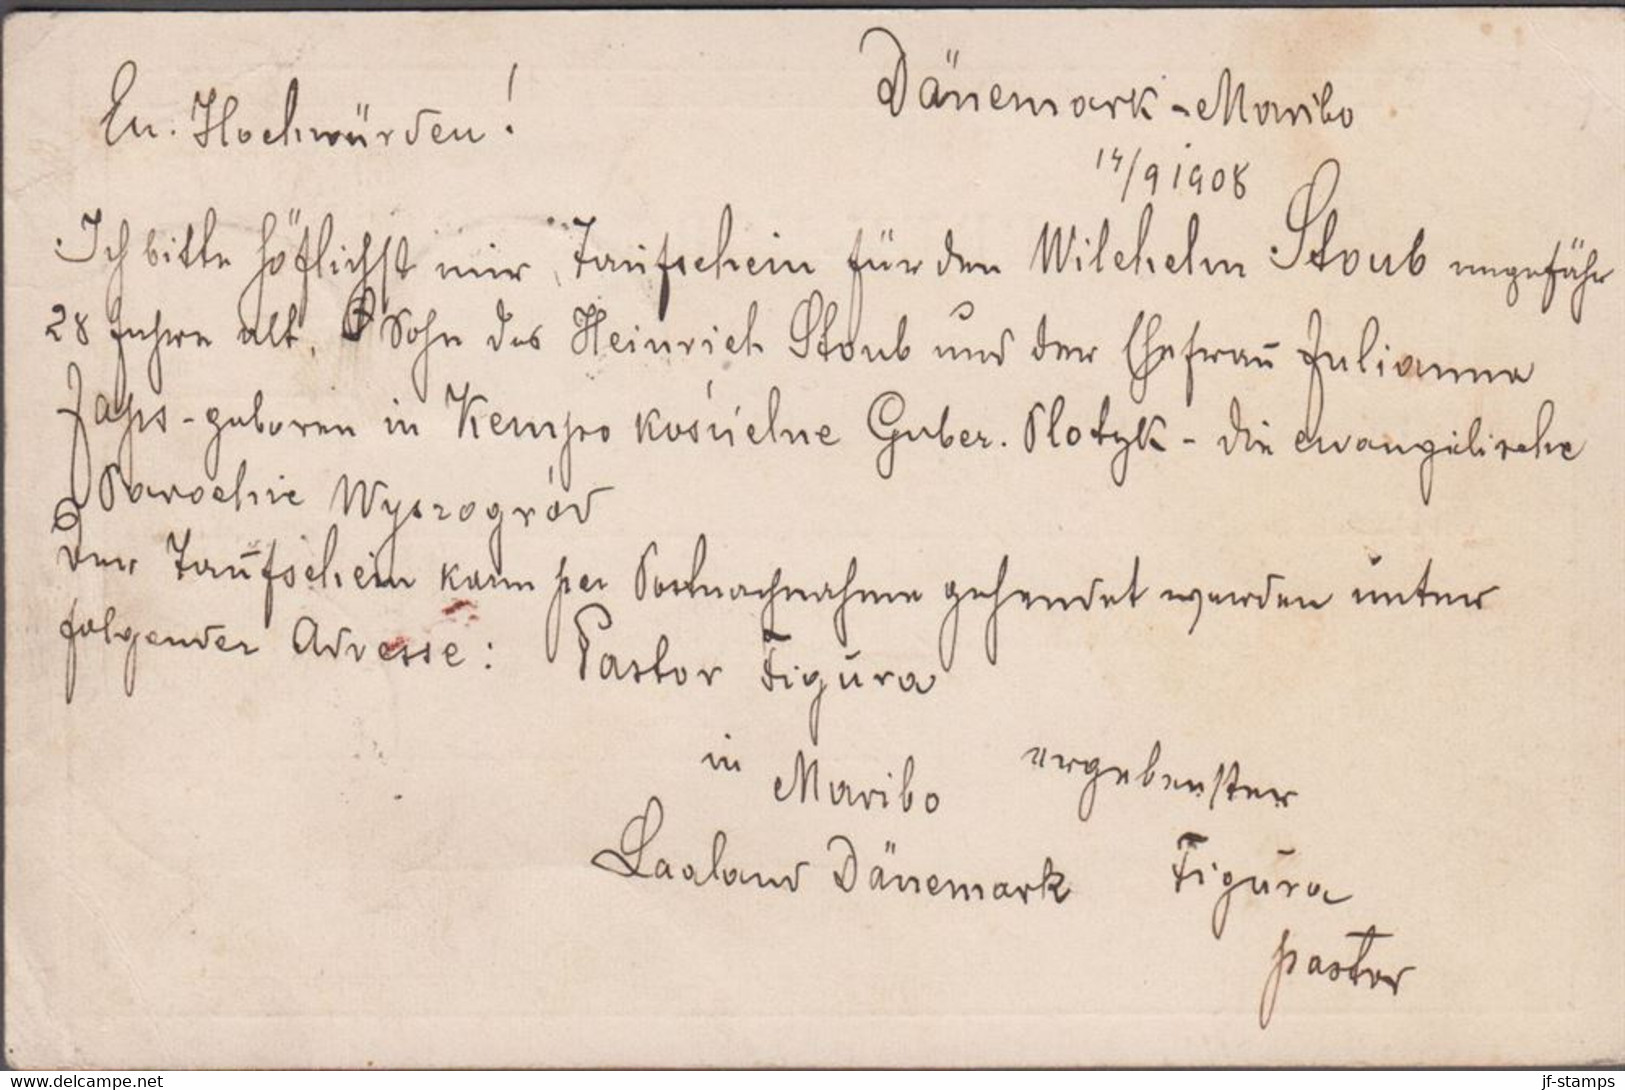 Dänemark - Maribo
Eu. Hochwürden!
14/9 1908
Ich bitte höflichst mir Taufschein für den Wilchelm Staub ungefähr
28 Jahre alt, Sohn des Heinrich Staub und der Ehefrau Julianna
Zaps - geboren in Kempo kościelne Guber. Plotzk - die ewangelische
Parochie Wyszogród
Der Taufschein kann per Postnachnahme gesendet werden unter
folgender Adresse: Pastor Figura
in Maribo
ergebenster
Laaland Dänemark Figura
pastor
www.delcampe.net
jf-stamps